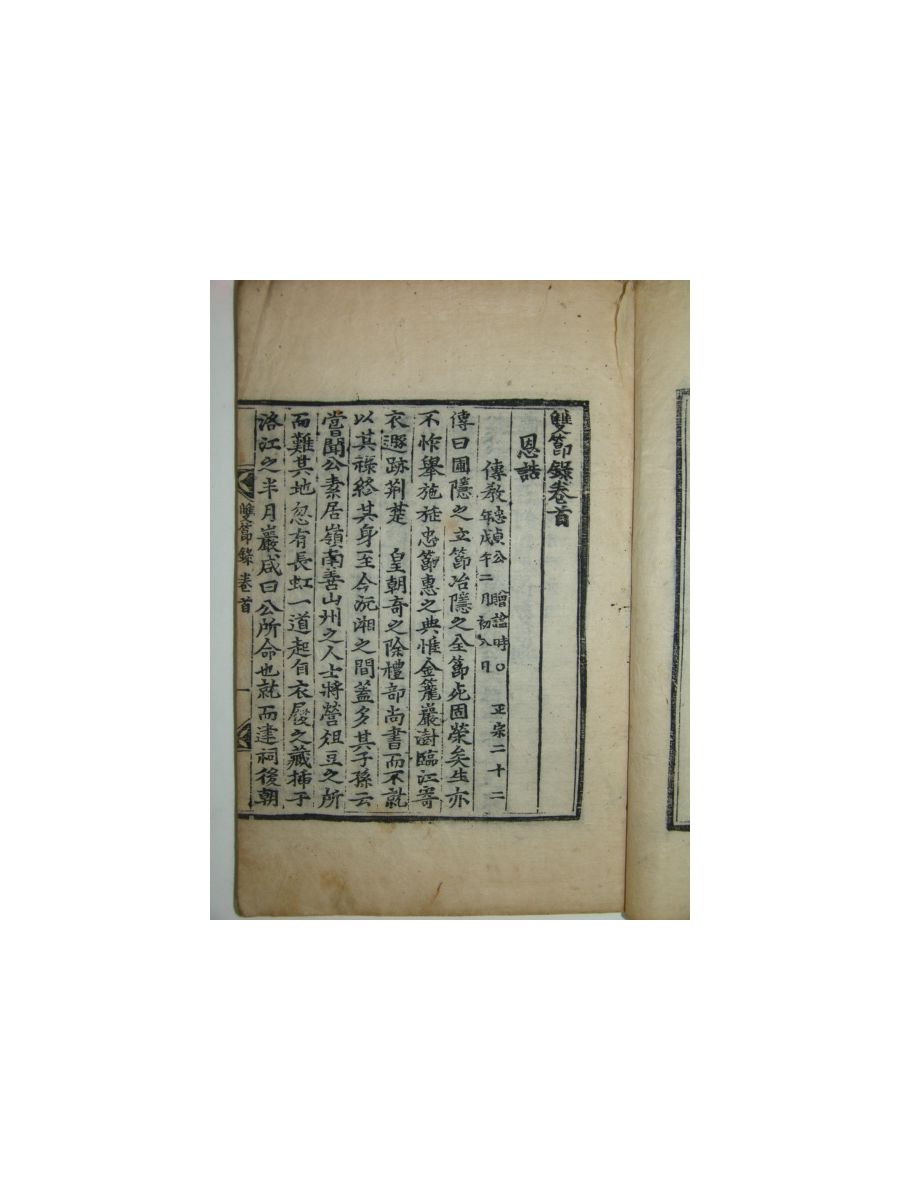 雙節錄卷首
恩誥
傳敎忠貞公 贈諡時○ 正宗二十二
年戊午二月初八日
傳曰圃隱之立節冶隱之全節死固榮矣生亦
不怍擧施旌忠節惠之典惟金籠巖澍臨江寄
衣遯跡荊楚 皇朝奇之除禮部尙書而不就
以其祿終其身至今沅湘之間蓋多其子孫云
嘗聞公素居嶺南善山州之人士將營俎豆之所
而難其地忽有長虹一道起自衣履之藏揷于
洛江之半月巖咸曰公所命也就而建祠後朝
雙節錄 卷首 一